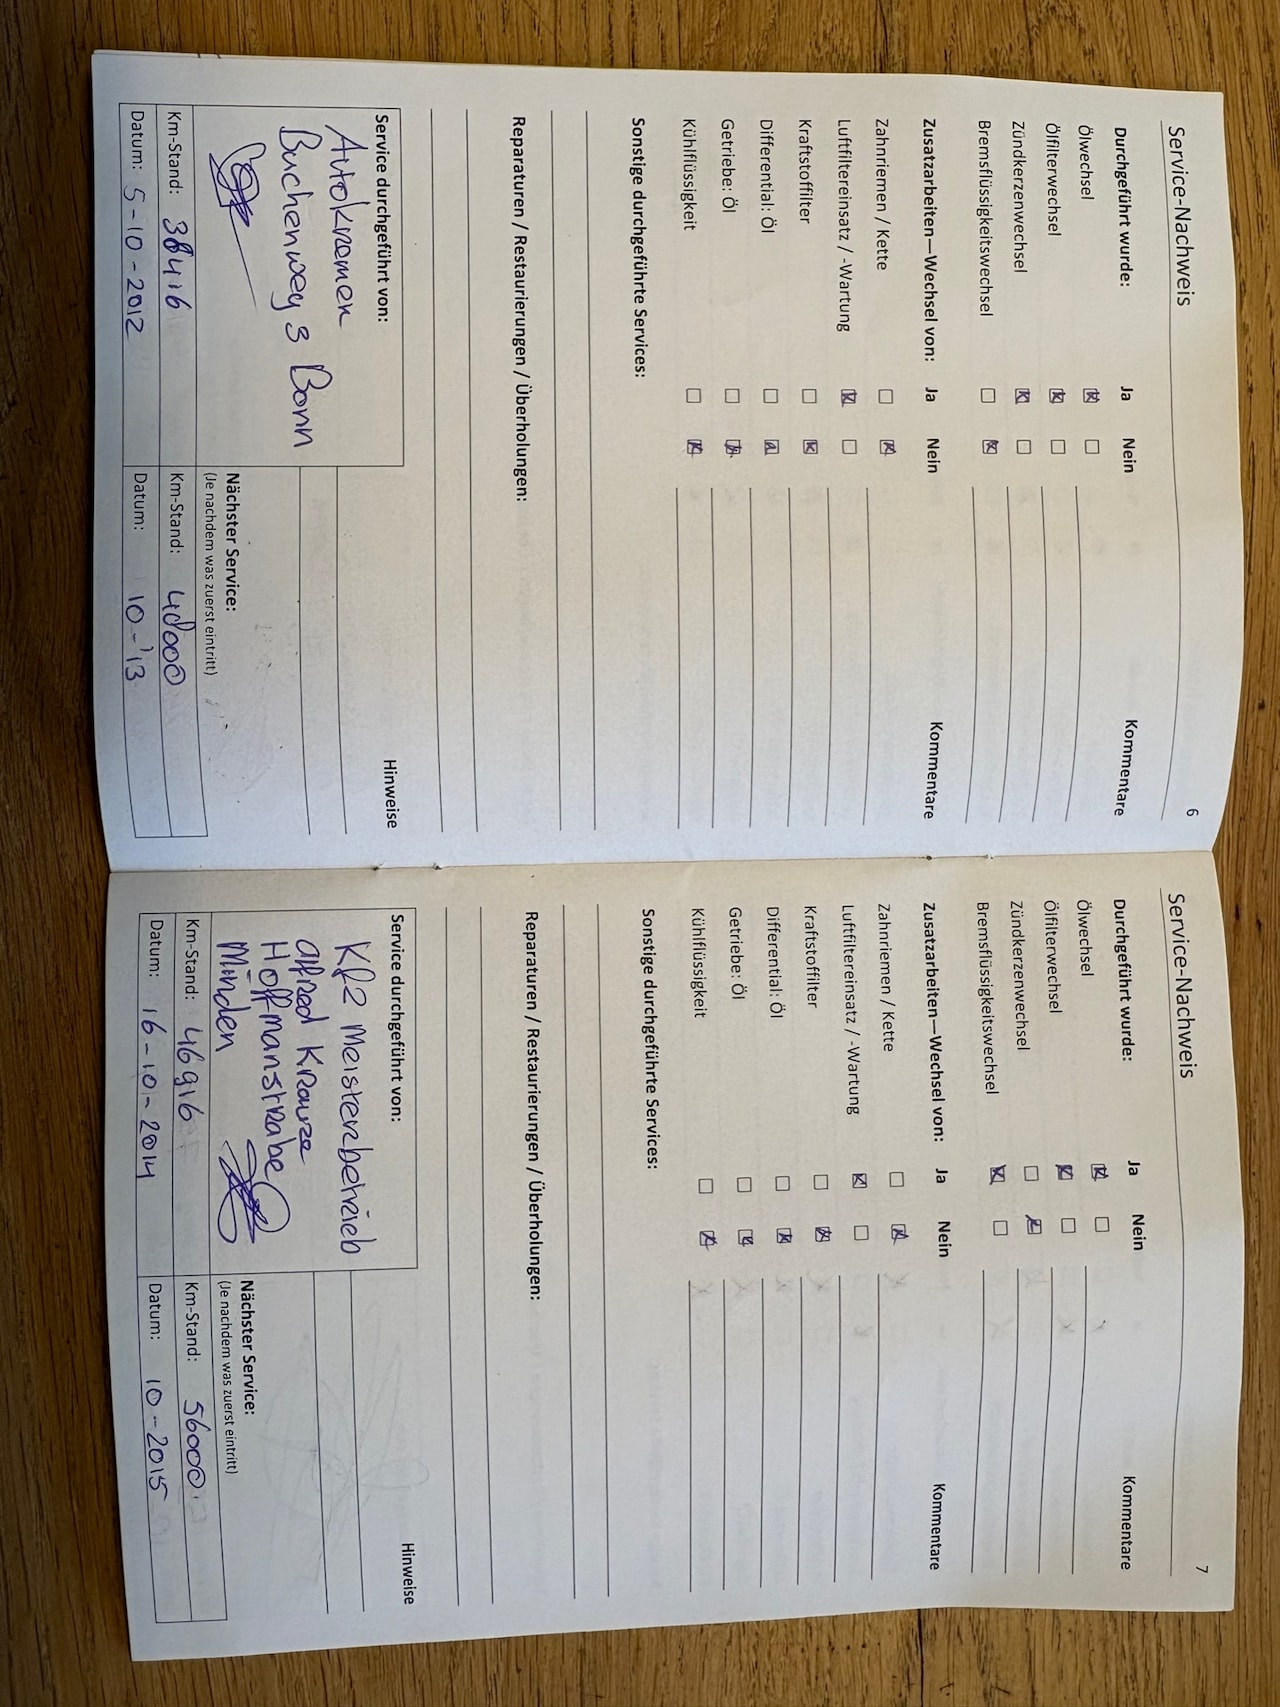 Service-Nachweis 6
Durchgeführt wurde: Ja Nein Kommentare
Ölwechsel
Ölfilterwechsel
Zündkerzenwechsel
Bremsflüssigkeitswechsel
Zusatzarbeiten—Wechsel von: Ja Nein Kommentare
Zahnriemen / Kette
Luftfiltereinsatz / -Wartung
Kraftstoffilter
Differential: Öl
Getriebe: Öl
Kühlflüssigkeit
Sonstige durchgeführte Services:
Reparaturen / Restaurierungen / Überholungen:
Service durchgeführt von: Hinweise
Autokremer
Buchenweg 3 Bonn
Nächster Service:
(Je nachdem was zuerst eintritt)
Km-Stand: 38416 Km-Stand: 48000
Datum: 5-10-2012 Datum: 10-'13
Service-Nachweis 7
Durchgeführt wurde: Ja Nein Kommentare
Ölwechsel
Ölfilterwechsel
Zündkerzenwechsel
Bremsflüssigkeitswechsel
Zusatzarbeiten—Wechsel von: Ja Nein Kommentare
Zahnriemen / Kette
Luftfiltereinsatz / -Wartung
Kraftstoffilter
Differential: Öl
Getriebe: Öl
Kühlflüssigkeit
Sonstige durchgeführte Services:
Reparaturen / Restaurierungen / Überholungen:
Service durchgeführt von: Hinweise
Kfz Meisterbetrieb
Alfred Krause
Hoffmanstraße
Minden
Nächster Service:
(Je nachdem was zuerst eintritt)
Km-Stand: 46916 Km-Stand: 56000
Datum: 16-10-2014 Datum: 10-2015